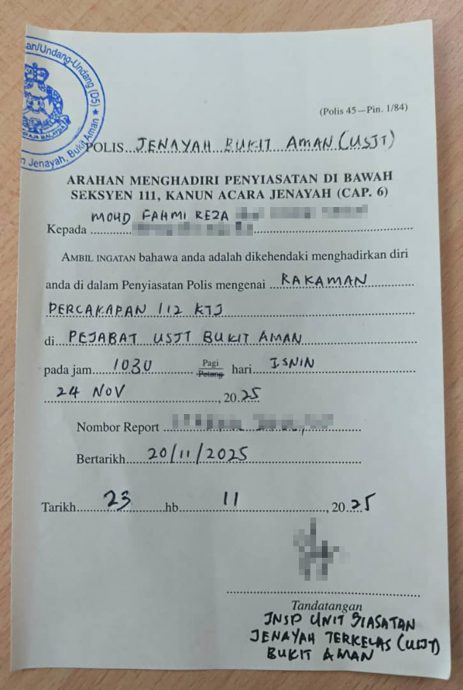 an/Undang-Undang (D5)
Jenayah, Bukit Aman
(Polis 45—Pin. 1/84)
POLIS JENAYAH BUKIT AMAN (USJT)
ARAHAN MENGHADIRI PENYIASATAN DI BAWAH
SEKSYEN 111, KANUN ACARA JENAYAH (CAP. 6)
MOHD FAHMI REZA
Kepada
AMBIL INGATAN bahawa anda adalah dikehendaki menghadirkan diri
anda di dalam Penyiasatan Polis mengenai RAKAMAN
PERCAKAPAN 112 KTJ
di PEJABAT USJT BUKIT AMAN
pada jam 1030 Pagi Petang hari ISNIN
24 NOV 2025
Nombor Report
Bertarikh 20/11/2025
Tarikh 23 hb 11, 2025
Tandatangan
INSP UNIT SIASATAN
JENAYAH TERKELAS (USJT)
BUKIT AMAN